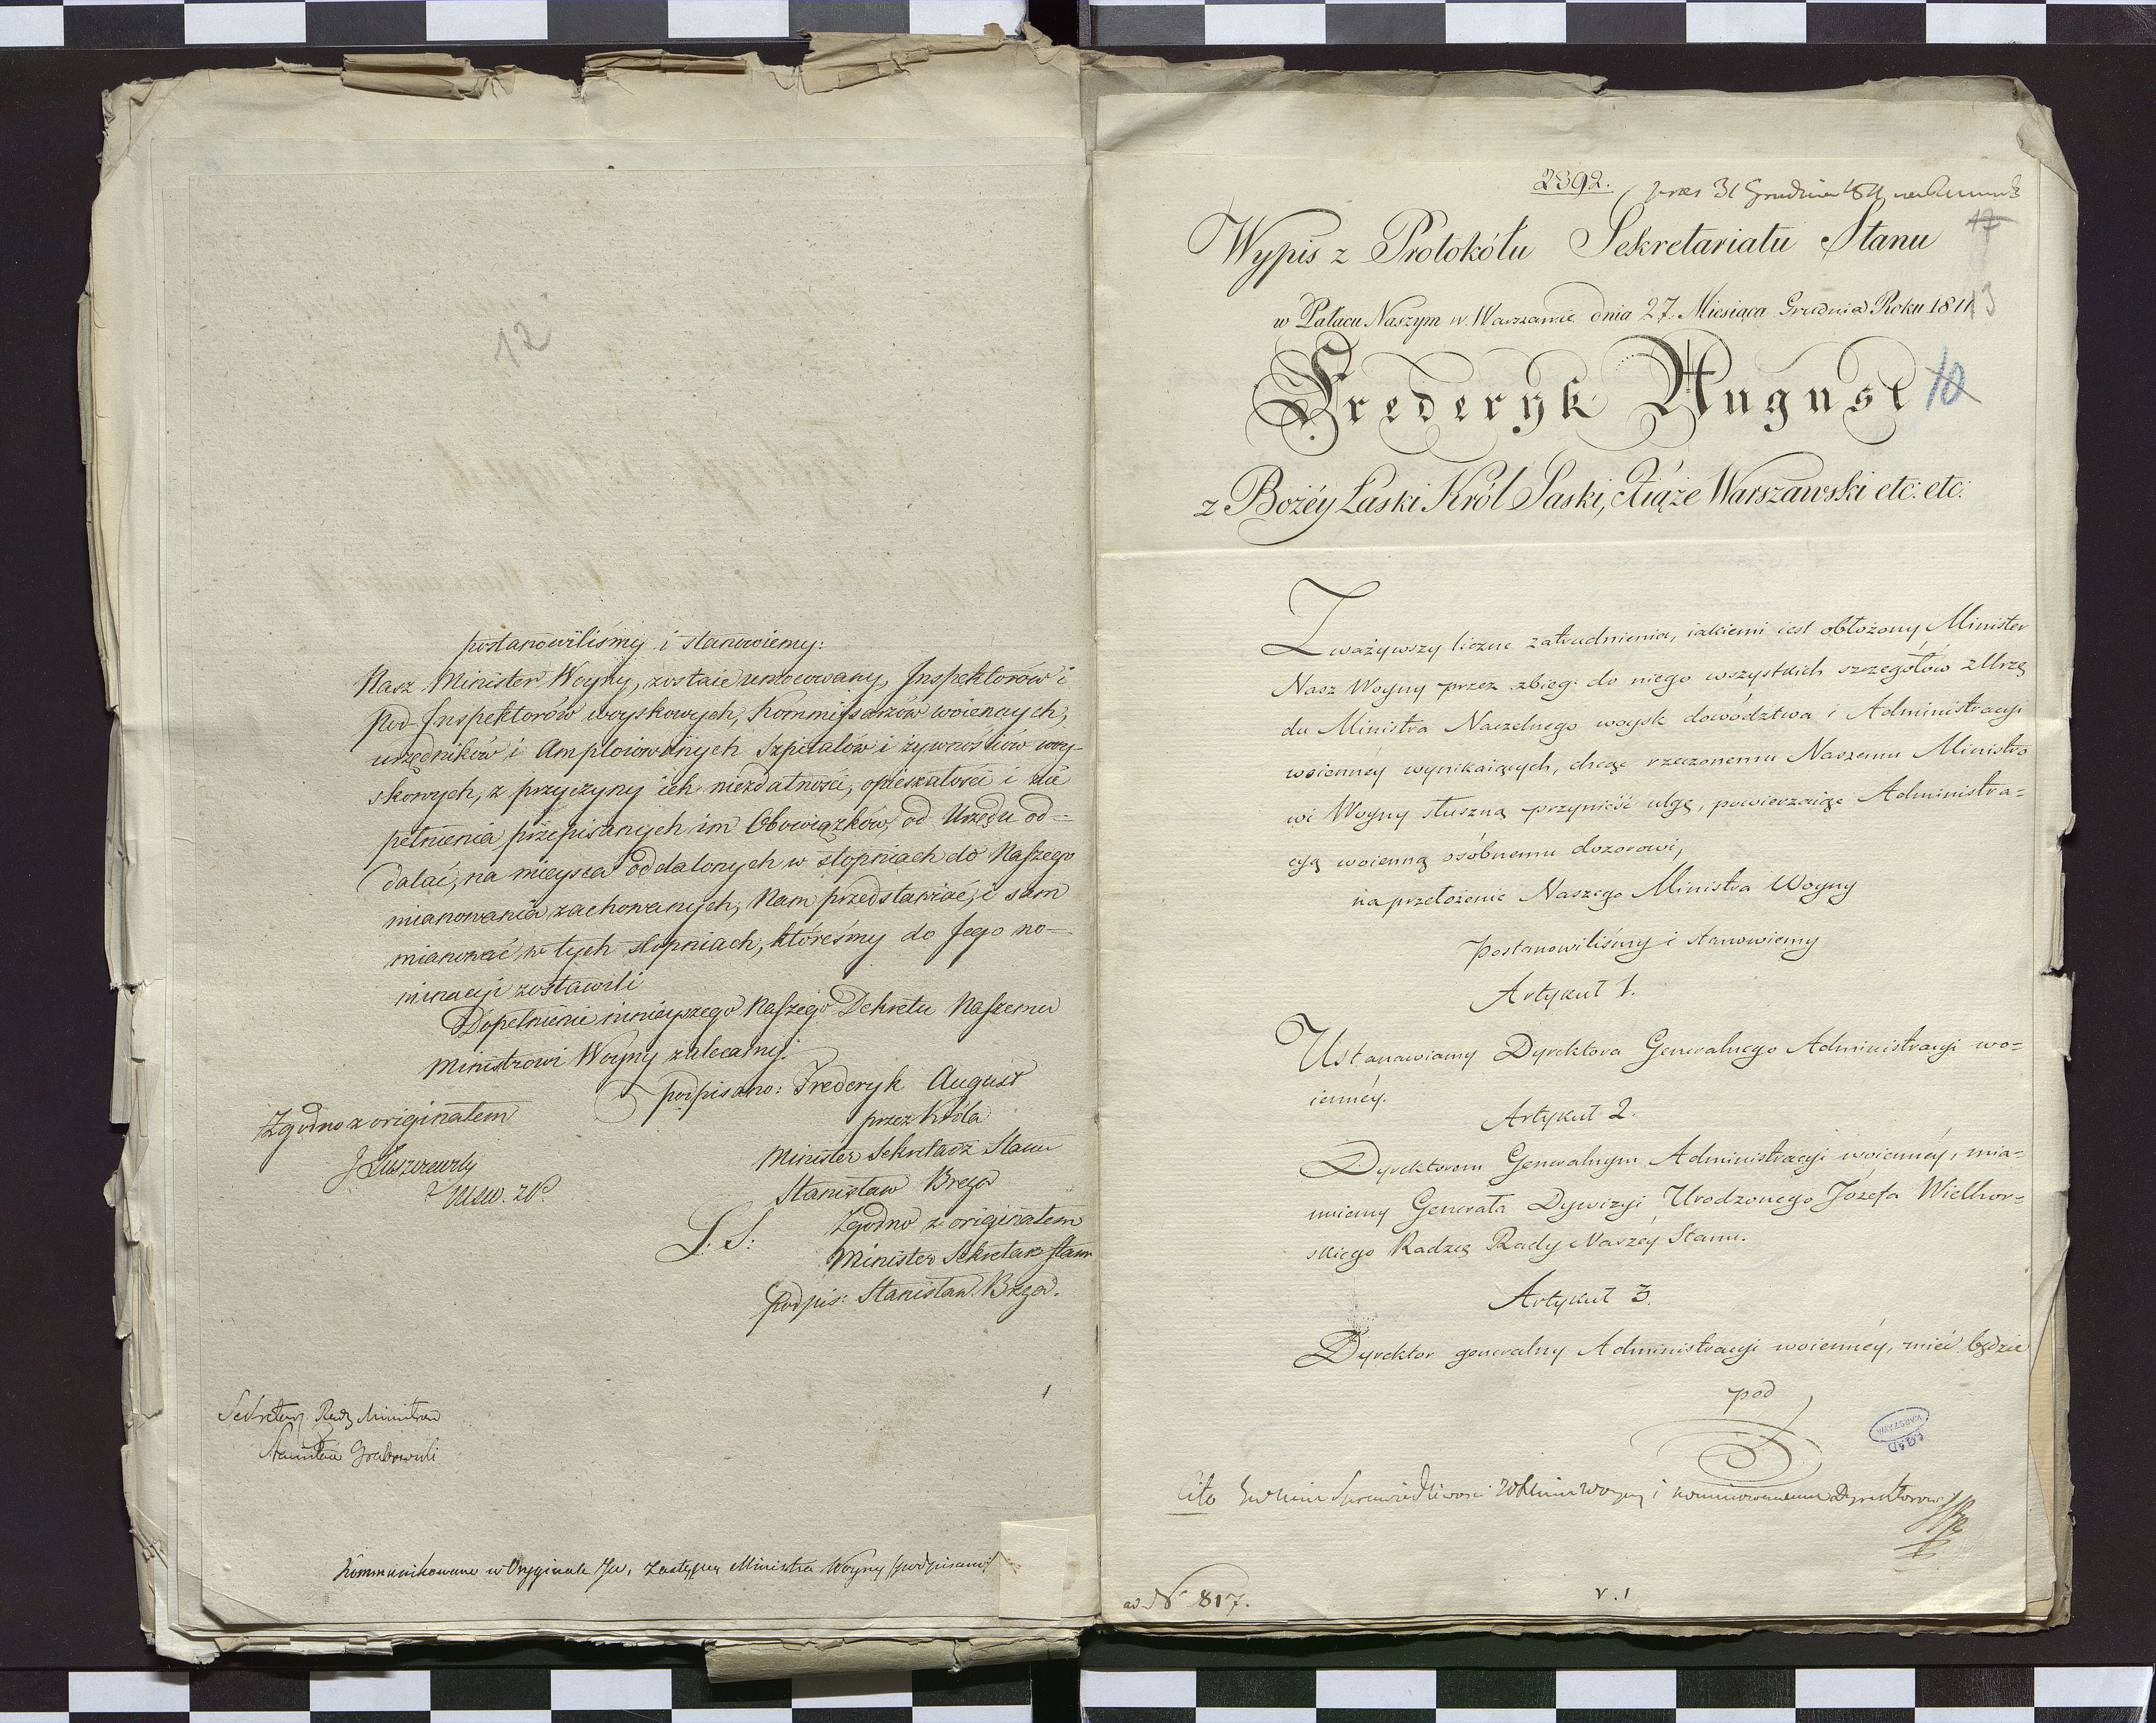 12
postanowiliśmy i stanowiemy:
Nasz Minister Woyny, zostaie umocowany, Inspektorów i
Pod-Inspektorów woyskowych, Kommissarzów woiennych,
urzędników i Amploiowanych Szpitalów i żywnościów woy-
skowych, z przyczyny ich niezdatności, opieszałości i nie
pełnienia przepisanych im Obowiązków, od Urzędu od=
dalać, na mieysca oddalonych w stopniach do Naszego
mianowania zachowanych, Nam przedstawiać, i sam
mianować, w tych stopniach, któreśmy do Jego no-
minacyi zostawili
Dopełnienie ninieyszego Naszego Dekretu Naszemu
Ministrowi Woyny zalecamy.
podpisano: Frederyk August
przez Króla
Minister Sekretarz Stanu
Stanisław Breza
Zgodno z originałem
Minister Sekretarz Stanu
podpis: Stanisław Breza.
L. S.
Zgodno z originałem
J Łuszczewski
Sekretarz Rady Ministrów
Stanisław Grabowski
Kommunikowano w Oryginale JW. Zastępcy Ministra Woyny /podpisano/
2392. prez 31 Grudnia
17
Wypis z Protokółu Sekretariatu Stanu
13
w Pałacu Naszym w Warszawie dnia 27. Miesiąca Grudnia Roku 1811
Frederyk August
10
z Bożéy Łaski Król Saski, Xiąże Warszawski etc: etc:
Zważywszy liczne zatrudnienia, iakiemi iest obłożony Minister
Nasz Woyny przez zbieg do niego wszystkich szczegółów z Urzę
du Ministra Naczelnego woysk dowództwa i Administracyi
woiennéy wynikaiących, chcąc rzeczonemu Naszemu Ministro
wi Woyny słuszną przynieść ulgę, powierzaiąc Administra=
cyą woienną osóbnemu dozorowi,
na przełożenie Naszego Ministra Woyny
Postanowiliśmy i stanowiemy
Artykuł 1.
Ustanawiamy Dyrektora Generalnego Administracyi wo=
iennéy.
Artykuł 2.
Dyrektorem Generalnym Administracyi woiennéy, mia=
nuiemy Generała Dywizyi Urodzonego Józefa Wielhor=
skiego Radzcę Rady Naszéy Stanu.
Artykuł 3.
Dyrektor generalny Administracyi woiennéy, mieć będzie
pod
AGAD
WARSZAWA
Cito Sprawiedliwości Woyny i nominowanemu Dyrektorowi
ad N 817.
v. 1